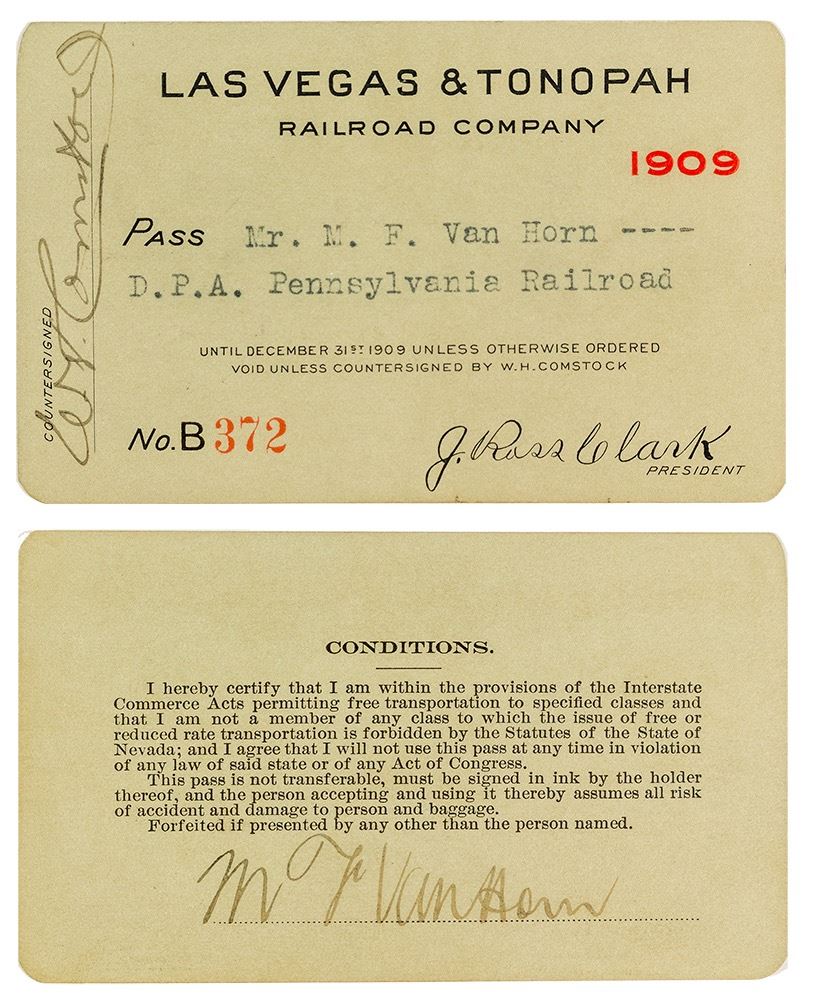 LAS VEGAS & TONOPAH
RAILROAD COMPANY
1909
PASS Mr. M. F. Van Horn ----
D.P.A. Pennsylvania Railroad
UNTIL DECEMBER 31ST 1909 UNLESS OTHERWISE ORDERED
VOID UNLESS COUNTERSIGNED BY W.H.COMSTOCK
COUNTERSIGNED
W.H. Comstock
No. B 372
J. Ross Clark
PRESIDENT
CONDITIONS.
I hereby certify that I am within the provisions of the Interstate
Commerce Acts permitting free transportation to specified classes and
that I am not a member of any class to which the issue of free or
reduced rate transportation is forbidden by the Statutes of the State of
Nevada; and I agree that I will not use this pass at any time in violation
of any law of said state or of any Act of Congress.
This pass is not transferable, must be signed in ink by the holder
thereof, and the person accepting and using it thereby assumes all risk
of accident and damage to person and baggage.
Forfeited if presented by any other than the person named.
M F Van Horn